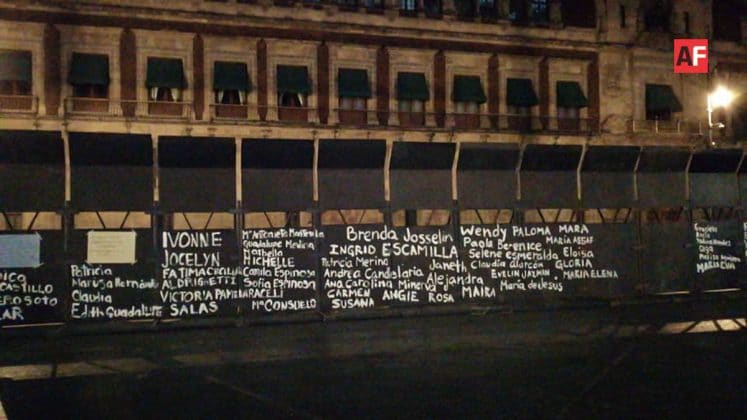 AF
ICO
CASTILLO
ERO SOTO
LAR
Patricia
Maruga Hernández
Claudia
Edith Guadalupe
IVONNE
JOCELYN
FATIMA CECILIA
ALDRIGHETTI
VICTORIA PAMELA
SALAS
Mª Antonieta
Guadalupe Medina
Isabella
MICHELLE
Camila Espinosa
Sofia Espinosa
ARACELI
Mª CONSUELO
Brenda Josselin
INGRID ESCAMILLA
Patricia Merina Janeth
Andrea Candelaria Alejandra
Ana Carolina Minerva
CARMEN ANGIE ROSA MAIRA
SUSANA
Wendy PALOMA MARA
Paola Berenice MARIA ASSAF
Selene esmeralda Eloisa
Claudia alarcón GLORIA
EVELIN JAZMIN MARIA ELENA
Maria de Jesus
Graciela
Karla
Olga
MARIA EVA